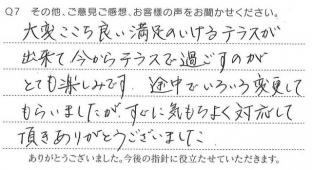 Q7 その他、ご意見ご感想、お客様の声をお聞かせください。
大変ここち良い満足のいけるテラスが
出来て今からテラスで過ごすのが
とても楽しみです。途中でいろいろ変更して
もらいましたが、すぐに気もちよく対応して
頂きありがとうございました
ありがとうございました。今後の指針に役立たせていただきます。